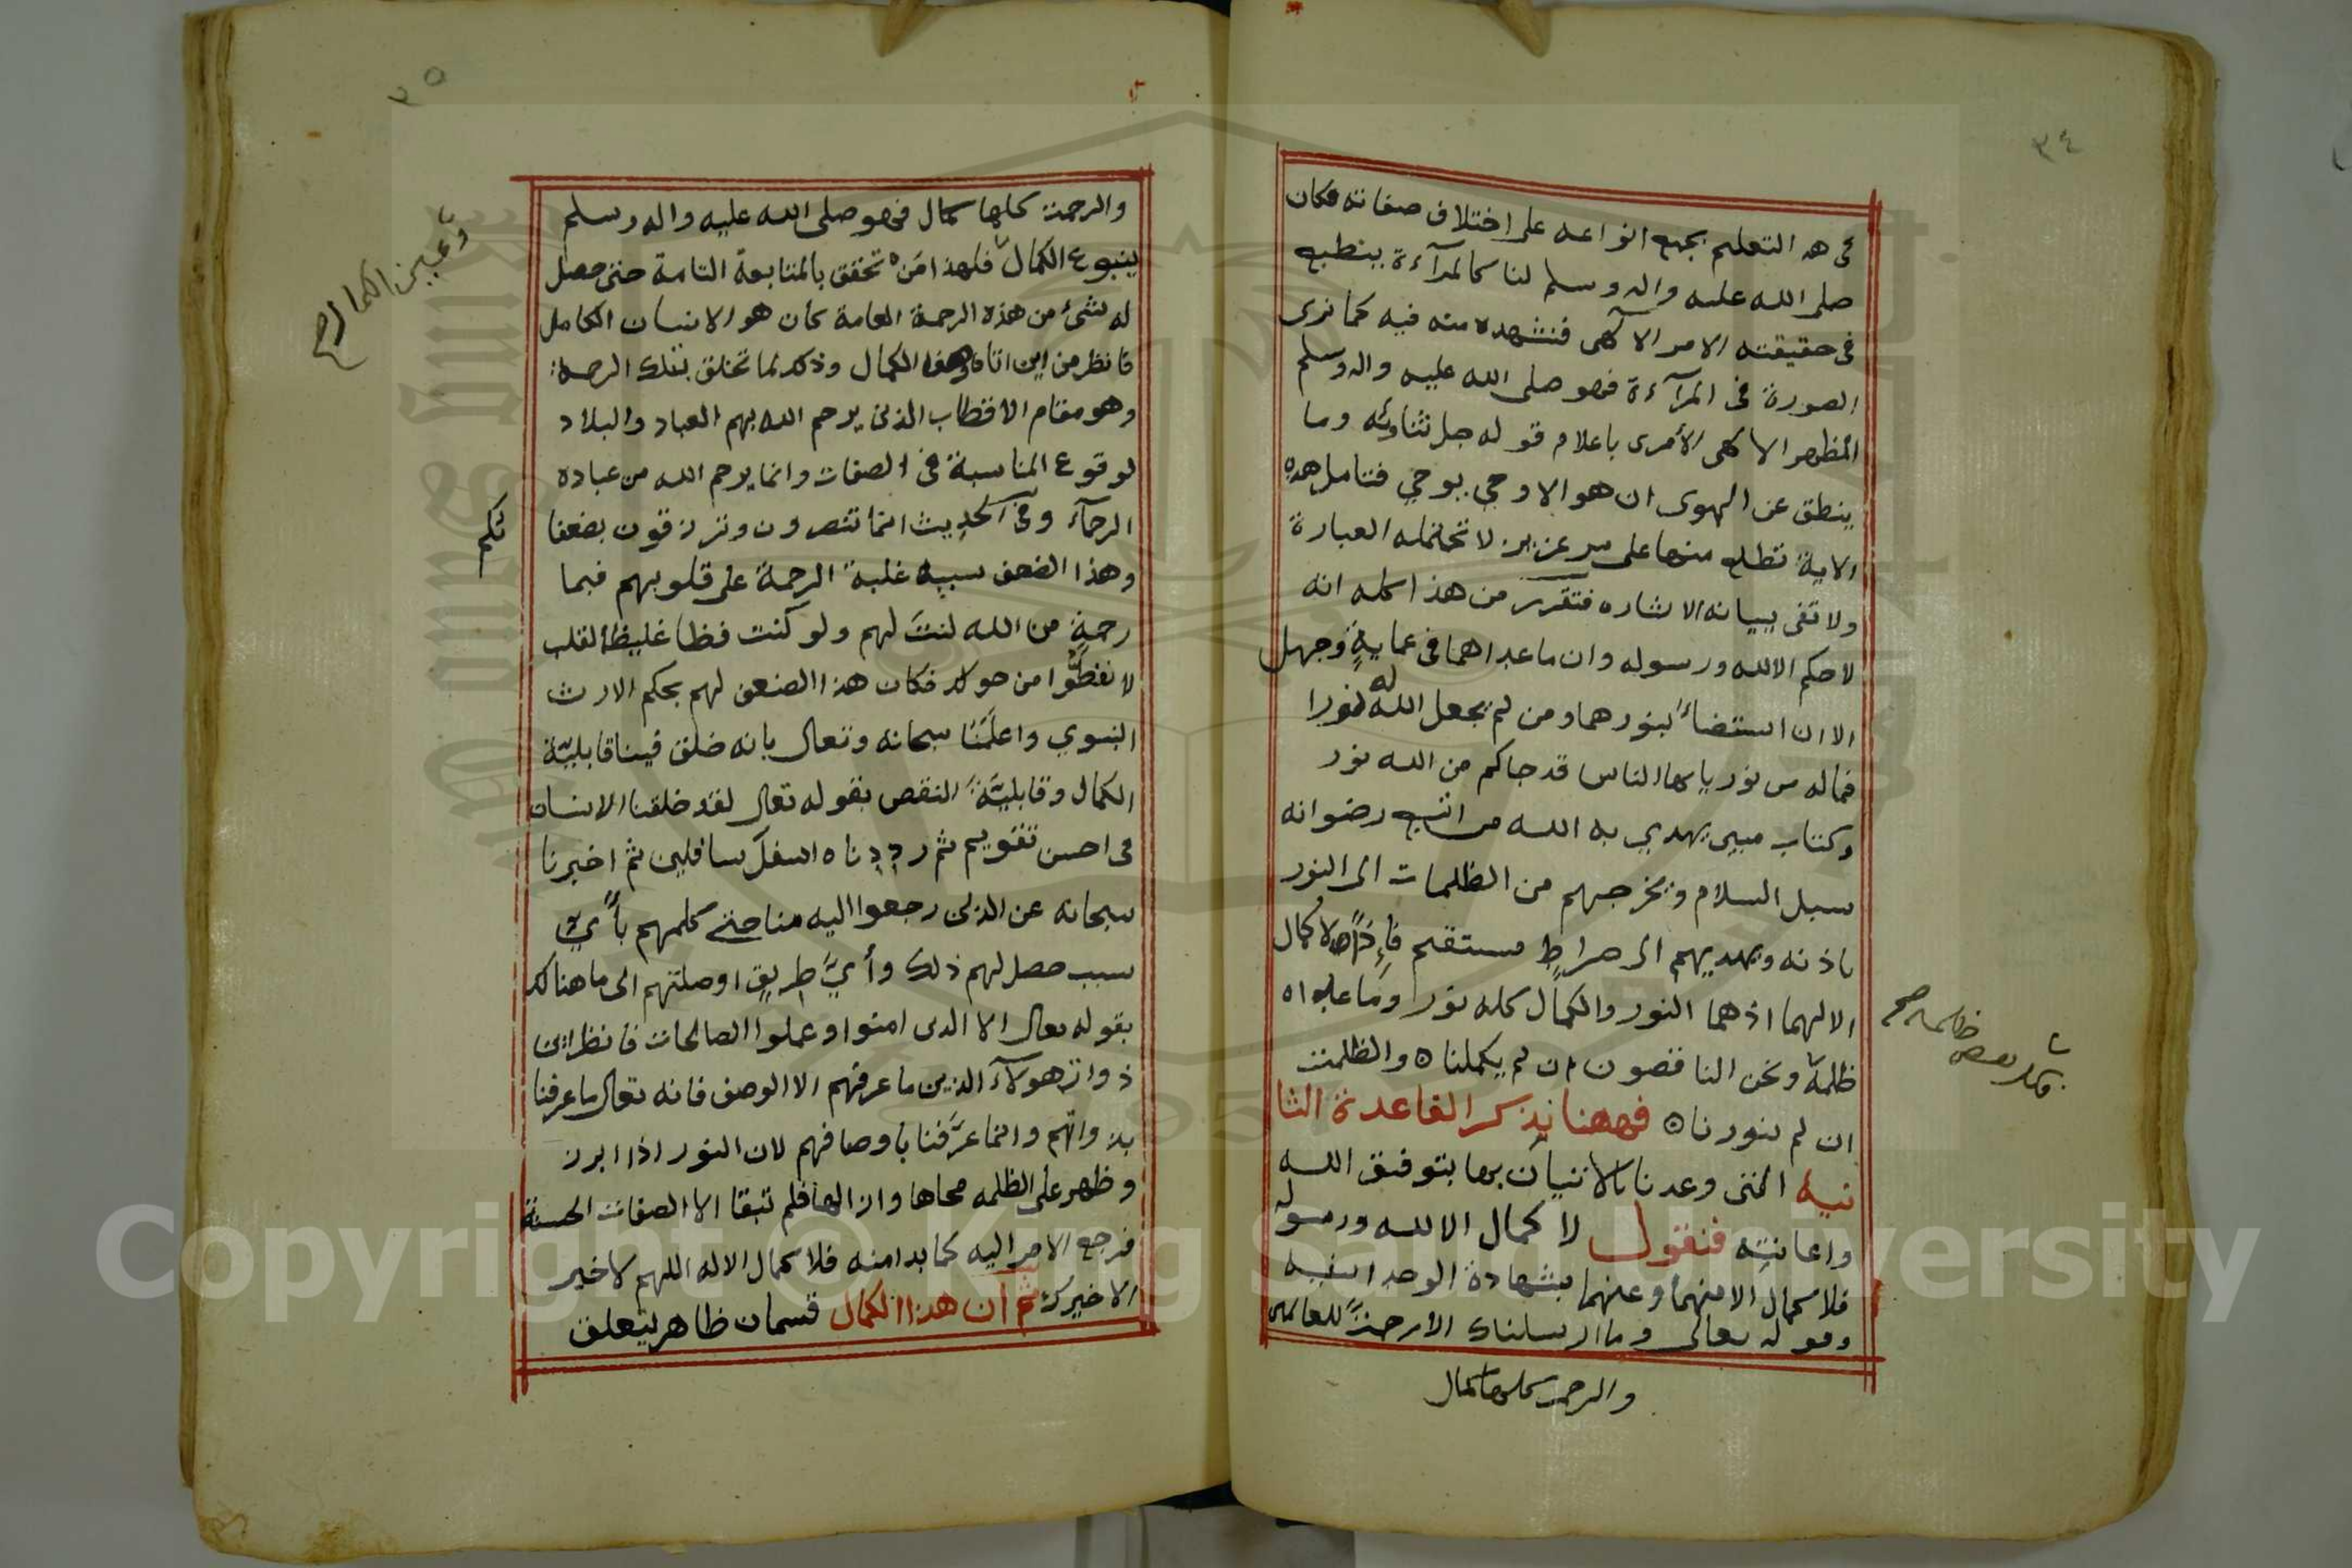 ٣٤
في هه التعليم بجميع انواعه على اختلاف صفاته فكان
صلى الله عليه واله وسلم لنا كالمرآءة ينطبع
في حقيقته الامر الالهي فنشهده منه فيه كما نرى
الصورة في المرآءة فهو صلى الله عليه واله وسلم
المظهر الالهي الأمرى باعلام قوله جل ثناوئه وما
ينطق عن الهوى ان هو الا وحي يوحي فتامل هذه
الاية تطلع منها على سر عزيز لا تحتمله العبارة
ولا تفى ببيانه الاشاره فتقرر من هذا كله انه
لا حكم الا لله ورسوله وان ما عداهما في عماية وجهل
الا ان استضاء بنورهما ومن لم يجعل الله له نورا
فماله من نور يا ايها الناس قد جاكم من الله نور
وكتاب مبين يهدي به الله من اتبع رضوانه
سبل السلام ويخرجهم من الظلمات الى النور
باذنه ويهديهم الى صراط مستقيم فإذاً لا كمال
الا لهما اذ هما النور والكمال كله نور وما عداه
ظلمة ونحن الناقصون ان لم يكملناه والظلمة
ان لم ينورناه فههنا نذكر القاعدة الثا
نيه التي وعدنا بالاتيان بها بتوفيق الله
واعانته فنقول لا كمال الا لله ورسوله
فلا كمال الا منهما وعنهما بشهادة الوحدانيه
وقوله تعالى وما ارسلناك الا رحمةً للعالمين
والرحمة كلها كمال
ظلمه صح
٣٥
والرحمة كلها كمال فهو صلى الله عليه واله وسلم
ينبوع الكمال فلهذا مَن تحقق بالمتابعة التامة حتى حصل
له شئ من هذه الرحمة العامة كان هو الانسان الكامل
فانظر من اين اتاه هذا الكمال وذلك لما تخلق بتلك الرحمة
وهو مقام الاقطاب الذين يرحم الله بهم العباد والبلاد
لوقوع المناسبة في الصفات وانما يرحم الله من عباده
الرحمآء وفي الحديث انما تنصرون وترزقون بضعفا
ئكم
وهذا الضعف سببه غلبة الرحمة على قلوبهم فبما
رحمةٍ من الله لنتَ لهم ولو كنت فظا غليظ القلب
لانفضّوا من حولك فكان هذا الضعف لهم بحكم الارث
النبوي واعلَمَنا سبحانه وتعالى بانه خلق فينا قابليّة
الكمال وقابليّة النقص بقوله تعالى لقد خلقنا الانسان
في احسن تقويم ثم رددناه اسفل سافلين ثم اخبرنا
سبحانه عن الذين رجعوا اليه منا حتى كلهم بأيّ
سبب حصل لهم ذلك وأيّ طريق اوصلتهم الى ما هنالك
بقوله تعالى الا الذين امنوا وعملوا الصالحات فانظر اين
ذوات هولآء الذين ما عرفتهم الا الوصف فانه تعالى ما عرفنا
بذواتهم وانما عرَّفنا باوصافهم لان النور اذا ابرز
وظهر على الظلمه محاها وازالها فلم تبقا الا الصفات الحسنة
فرجع الامر اليه كما بدا منه فلا كمال الا له اللهم لا خير
الا خيرك ثم ان هذا الكمال قسمان ظاهر يتعلق
وعين الكمال صح
Copyright © King Saud University